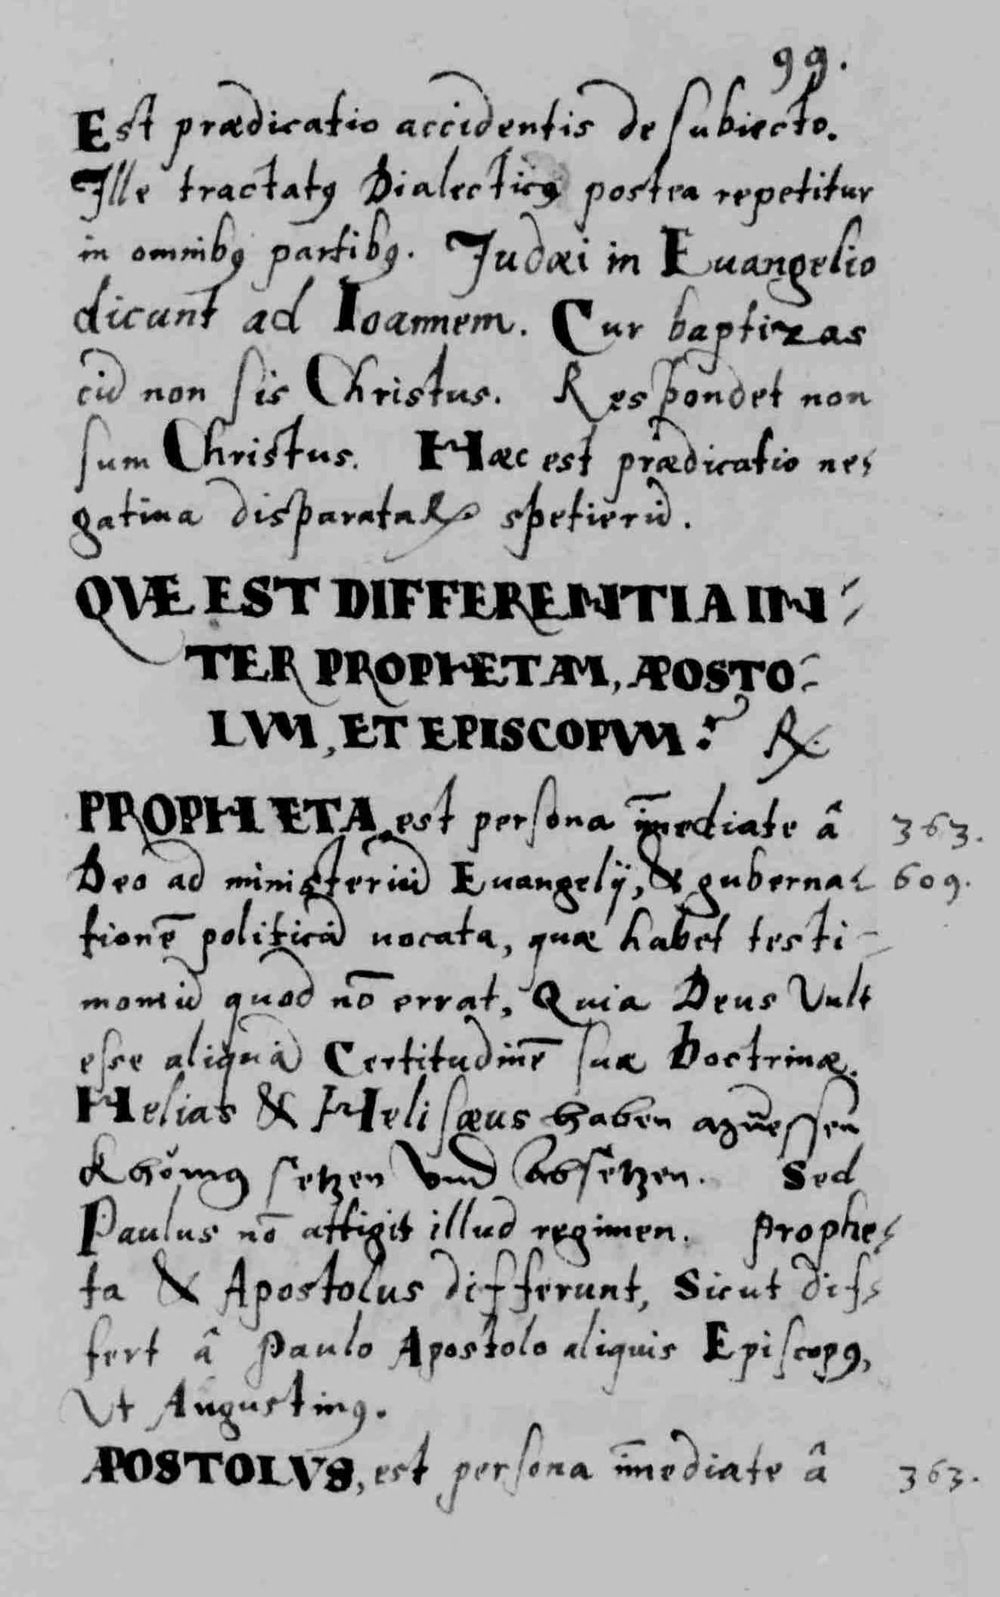 99.
Est prædicatio accidentis de subiecto.
Ille tractatꝰ Dialecticꝰ postea repetitur
in omnibꝰ partibꝰ. Judæi in Euangelio
dicunt ad Ioannem. Cur baptizas
cū non sis Christus. Respondet non
sum Christus. Hæc est prædicatio ne-
gatiua disparataꝝ spetierū.
QVÆ EST DIFFERENTIA IN-
TER PROPHETAM, APOSTO-
LVM, ET EPISCOPVM? ℞.
PROPHETA est persona īmediate â 363.
Deo ad ministeriū Euangelÿ, & guberna- 609.
tionē politicā uocata, quæ habet testi-
moniū quod nō errat, Quia Deus Vult
esse aliquā Certitudinē suæ Doctrinæ.
Helias & Helisæus haben
khönig setzen Vnd absetzen. Sed
Paulus nō attigit illud regimen. Prophe-
ta & Apostolus differunt, Sicut dif-
fert â Paulo Apostolo aliquis Episcopꝰ,
Vt Augustinꝰ.
APOSTOLVS, est persona īmediate â 363.